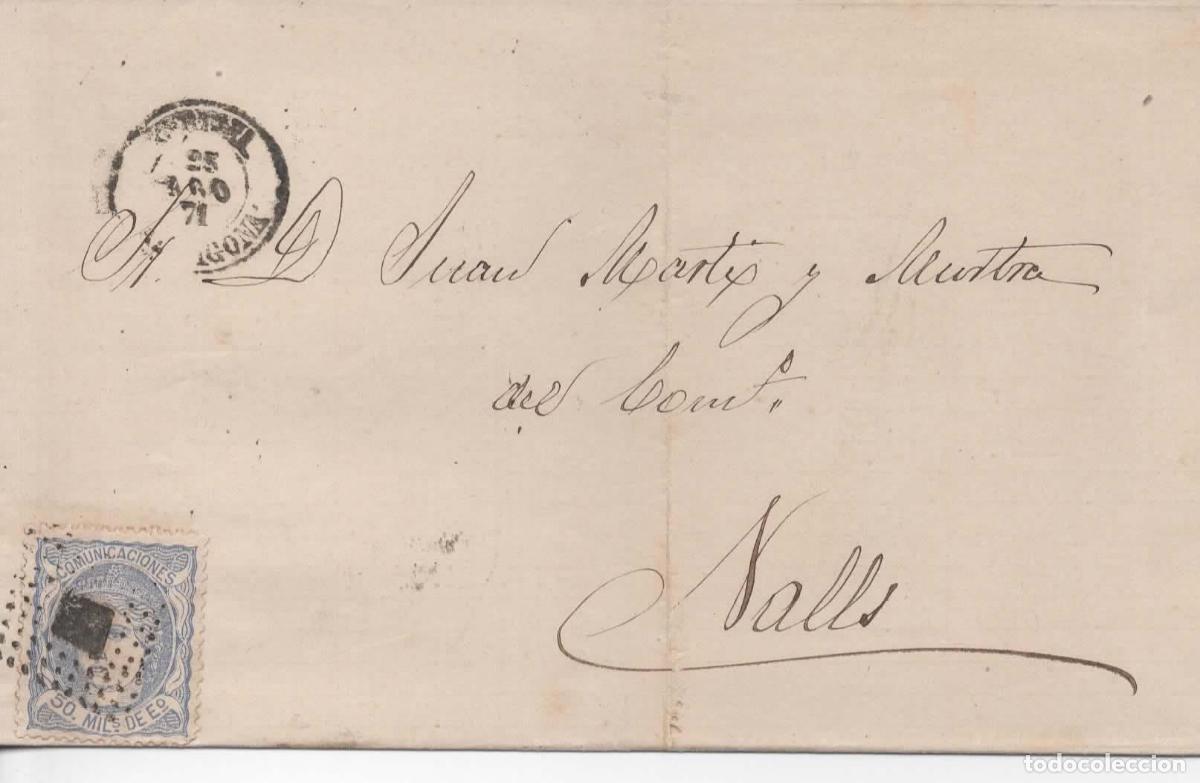 25
AGO
71
Sr. D. Juan Martix y Mustra
del Comº.
Valls
COMUNICACIONES
50. MILS DE Eº
todocoleccion